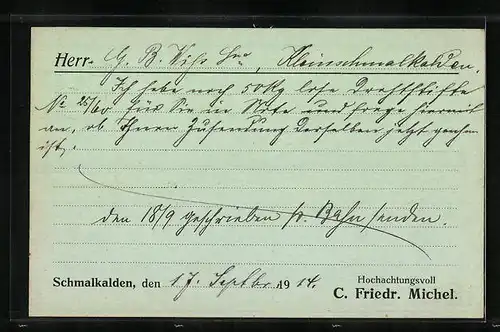 Herr G. B. Kleinschmalkalden.
Ich habe noch 50 Kg lose Drahtstifte
No 25/60 für Sie in Note und frage hiermit
an, ob Ihnen Zusendung derselben jetzt genehm
ist.
den 18/9 geschrieben p. Bahn senden.
Schmalkalden, den 17. Septbr. 1914.
Hochachtungsvoll
C. Friedr. Michel.